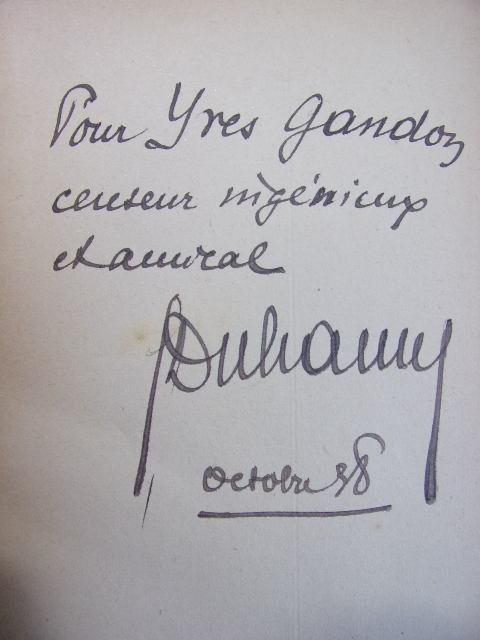 Pour Yves Gandon
censeur ingénieux
et amical
Duhamel
octobre 38